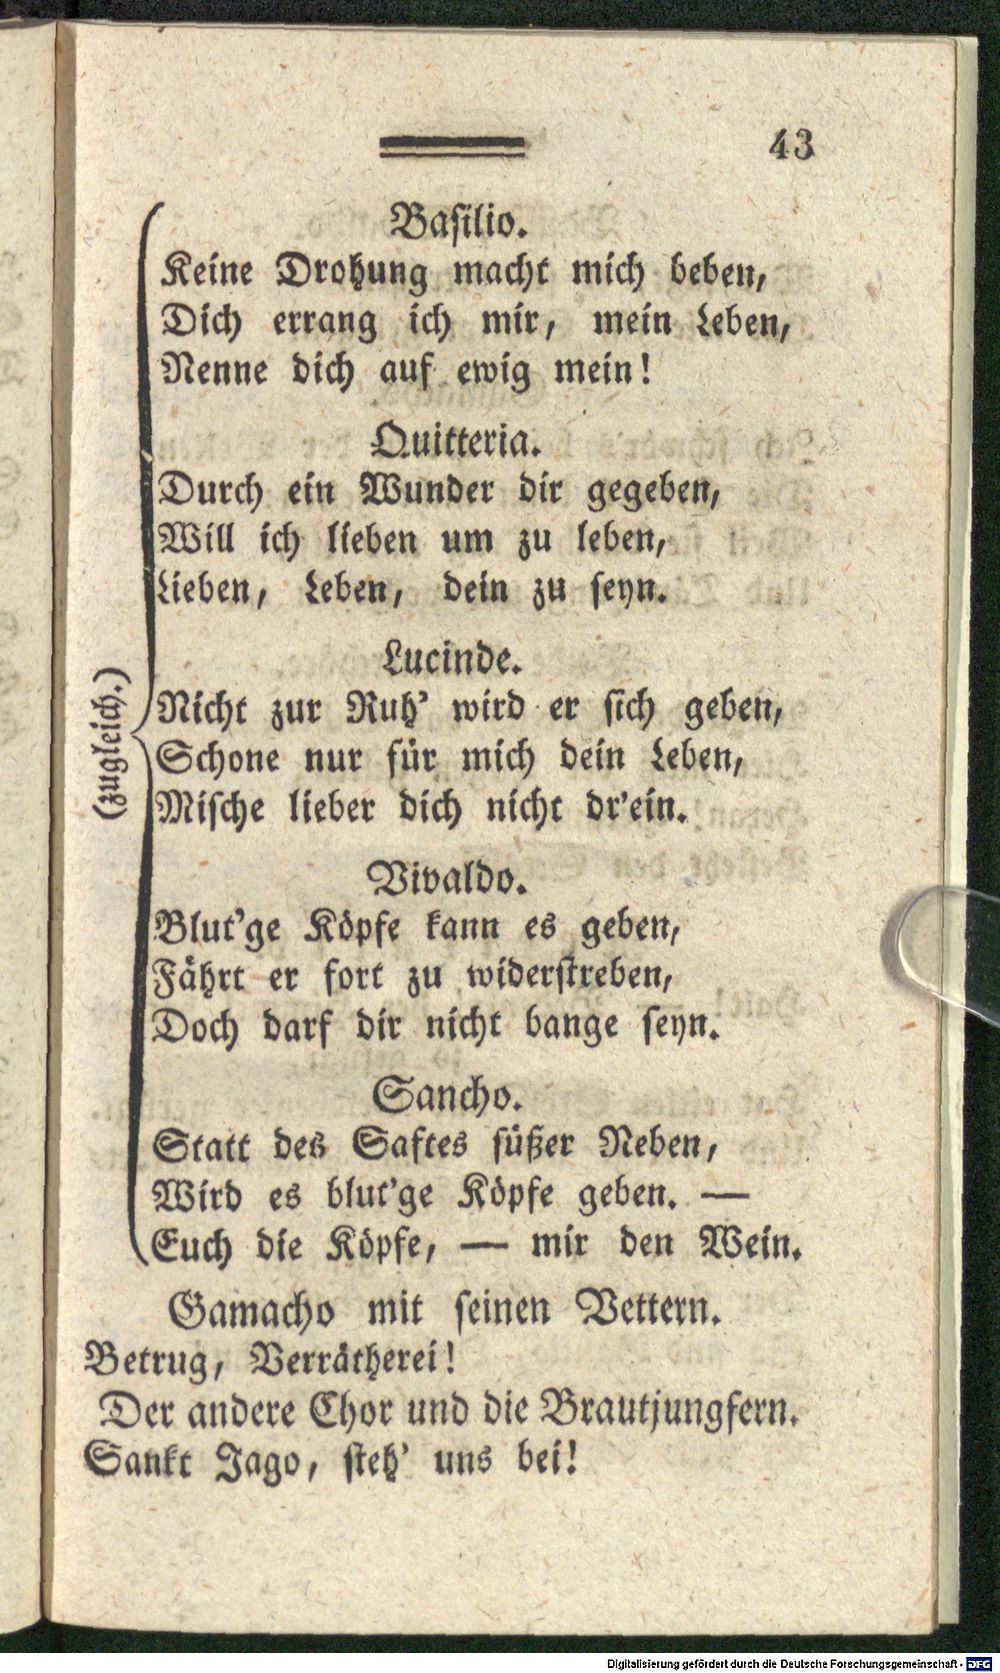 43
Basilio.
Keine Drohung macht mich beben,
Dich errang ich mir, mein Leben,
Nenne dich auf ewig mein!
Quitteria.
Durch ein Wunder dir gegeben,
Will ich lieben um zu leben,
Lieben, Leben, dein zu seyn.
Lucinde.
(zugleich.)
Nicht zur Ruh' wird er sich geben,
Schone nur für mich dein Leben,
Mische lieber dich nicht dr'ein.
Vivaldo.
Blut'ge Köpfe kann es geben,
Fährt er fort zu widerstreben,
Doch darf dir nicht bange seyn.
Sancho.
Statt des Saftes süßer Reben,
Wird es blut'ge Köpfe geben. —
Euch die Köpfe, — mir den Wein.
Gamacho mit seinen Vettern.
Betrug, Verrätherei!
Der andere Chor und die Brautjungfern.
Sankt Jago, steh' uns bei!
Digitalisierung gefördert durch die Deutsche Forschungsgemeinschaft - DFG